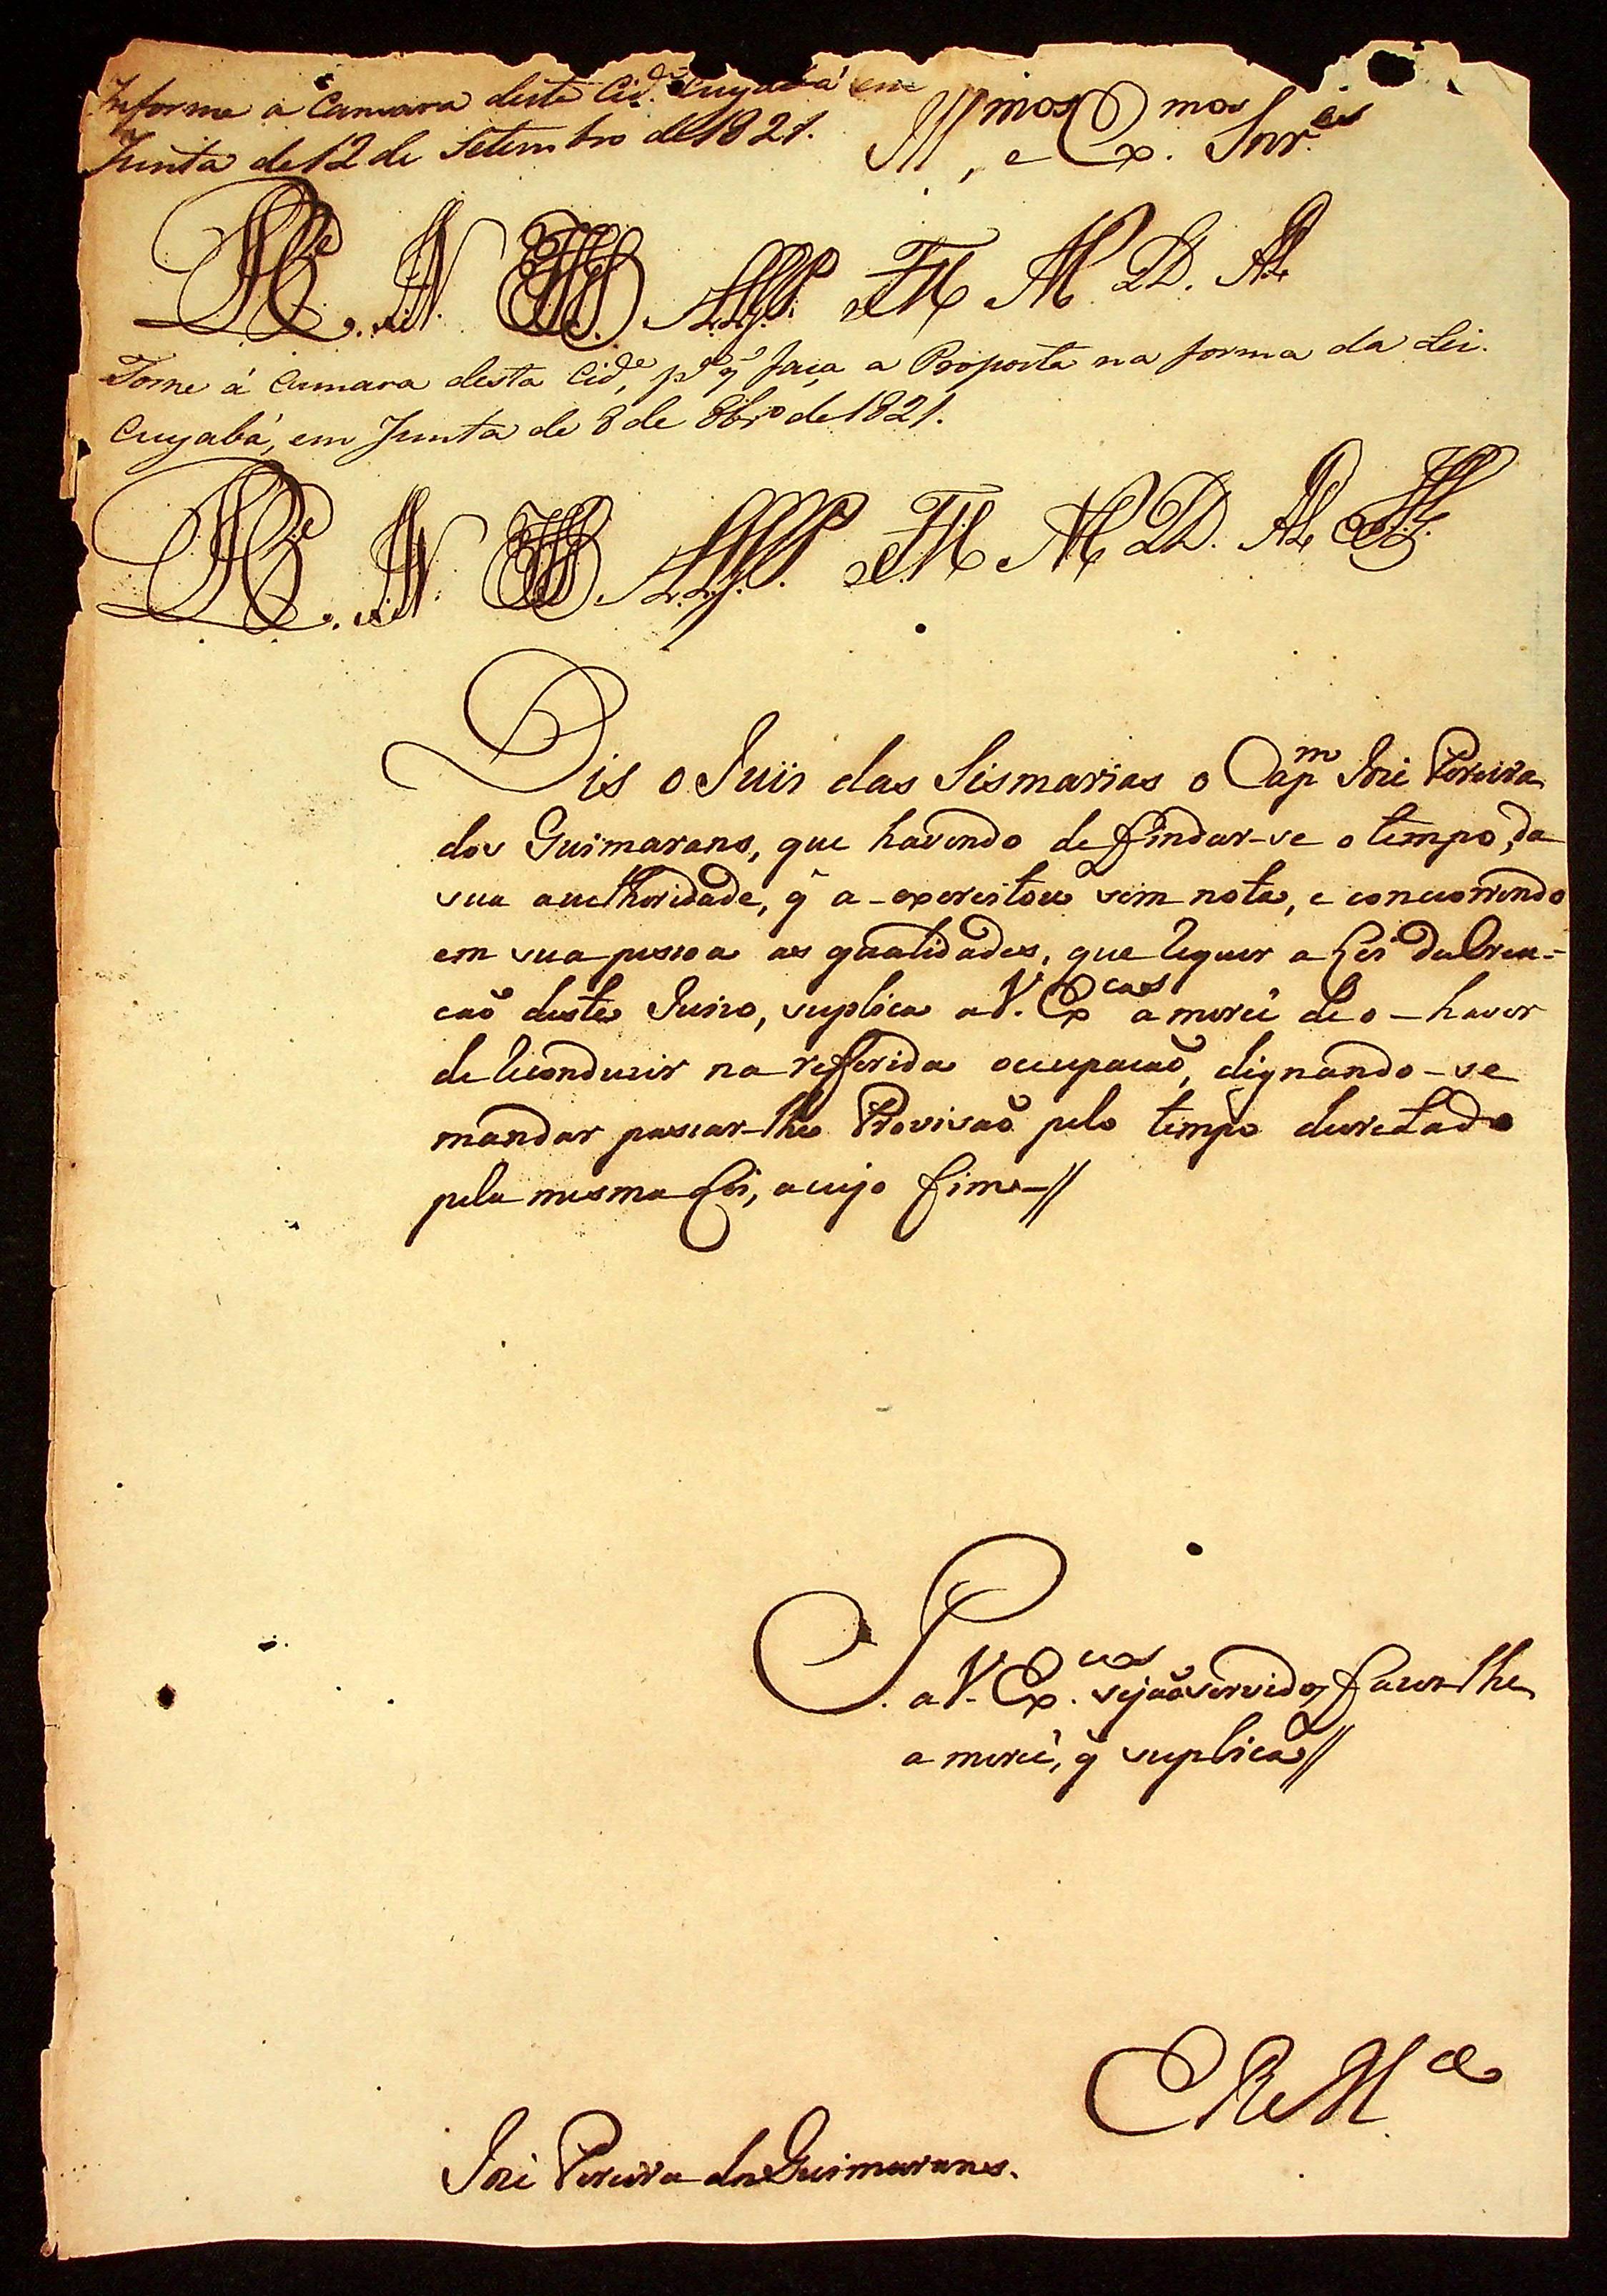 Informe a Camara desta Cid.e Cuyabá em
Junta de 12 de Setembro de 1821.
Ill.mos, e Ex.mos Snr.es
Torne á Camara desta Cid.e, p.a q̃ faça a Proposta na forma da Lei.
Cuyabá, em Junta de 8 de 8br.o de 1821.
Dis o Juis das Sismarias o Cap.m José Pereira
dos Guimarans, que havendo de findar-se o tempo, da
sua authoridade, q̃ a-exercitou sem nota, e concorrendo
em sua pessoa as qualidades, que requer a Lei da Crea-
cão deste Juizo, suplica a V. Ex.cas a mercê de o-haver
de reconduzir na refferida ocupacão, dignando-se
mandar passar-lhe Provisão pelo tempo decretado
pela mesma Lei, a cujo fim-//
P. a V. Ex.cas sejão servidos fazer-lhe
a mercê, q̃ suplica//
E R M.ce
José Pereira dos Guimarans.